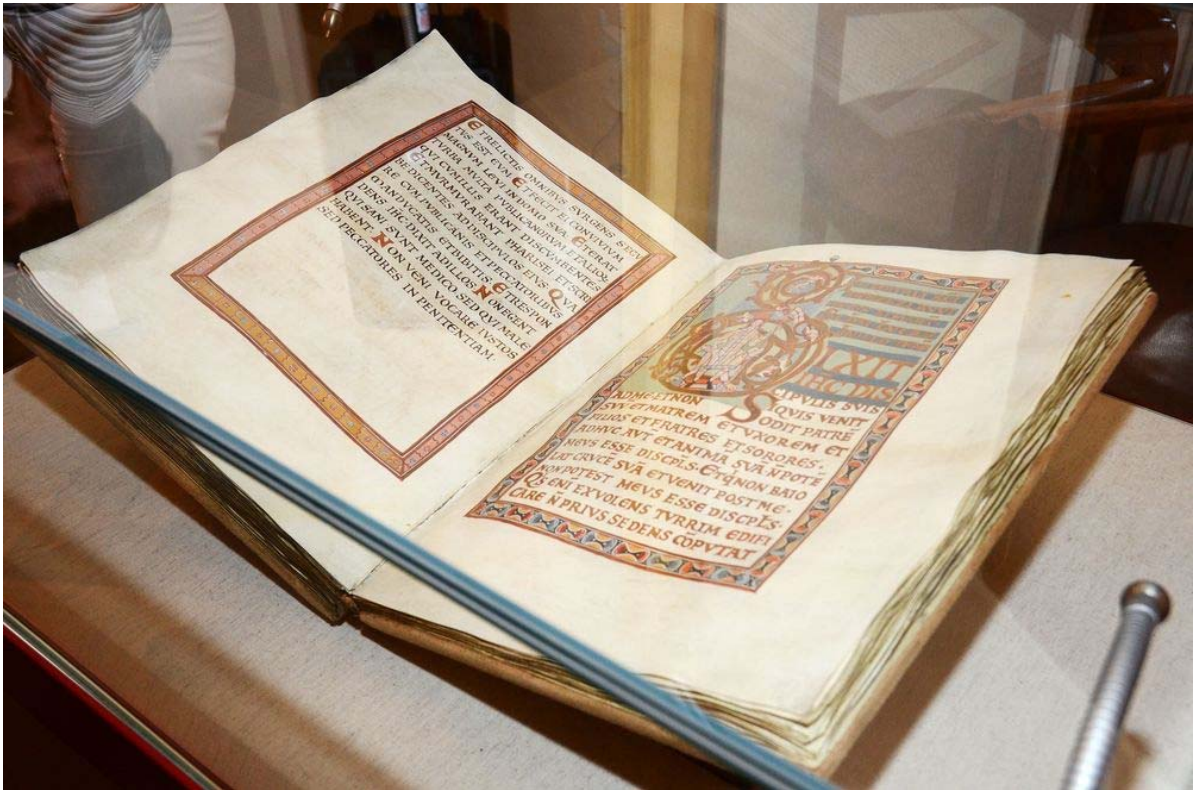 ET RELICTIS OMNIBVS SVRGENS SECV
TVS EST EVM ET FECIT EI CONVIVIVM
MAGNVM LEVI IN DOMO SVA. ET ERAT
TVRBA MVLTA PVBLICANORVM ET ALIORṼ
QVI CVM ILLIS ERANT DISCVMBENTES
ET MVRMVRABANT PHARISEI ET SCRI
BE DICENTES AD DISCIPVLOS EIVS QVA
RE CVM PVBLICANIS ET PECCATORIBVS
MANDVCATIS ET BIBITIS. ET RESPON
DENS IHC DIXIT AD ILLOS NON EGENT
QVI SANI SVNT MEDICO SED QVI MALE
HABENT NON VENI VOCARE IVSTOS
SED PECCATORES IN PENITENTIAM.
DIXIT
IHC DIS
CIPVLIS SVIS
QVIS VENIT
AD ME ET NON ODIT PATRĒ
SVV ET MATREM ET VXOREM ET
FILIOS ET FRATRES ET SORORES.
ADHVC AVT ET ANIMĀ SVĀ Ñ POTE
MEVS ESSE DISCPLS. ET Q̄ NON BAIO
LAT CRVCĒ SVĀ ET VENIT POST ME.
NON POTEST MEVS ESSE DISCPL̄S.
Q̄S ENI EX VOLENS TVRRIM EDIFI
CARE Ñ PRIVS SEDENS CŌPVTAT